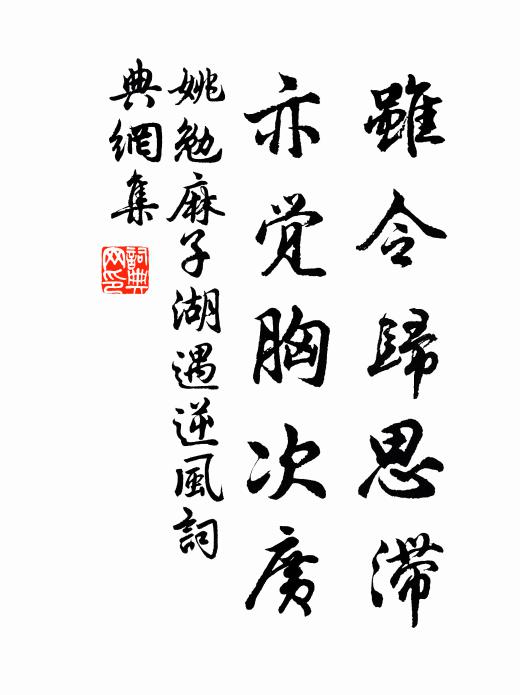 雖令歸思滯
亦觉胸次廣
姚勉麻子湖遇逆風詞
典網集
詞典网印